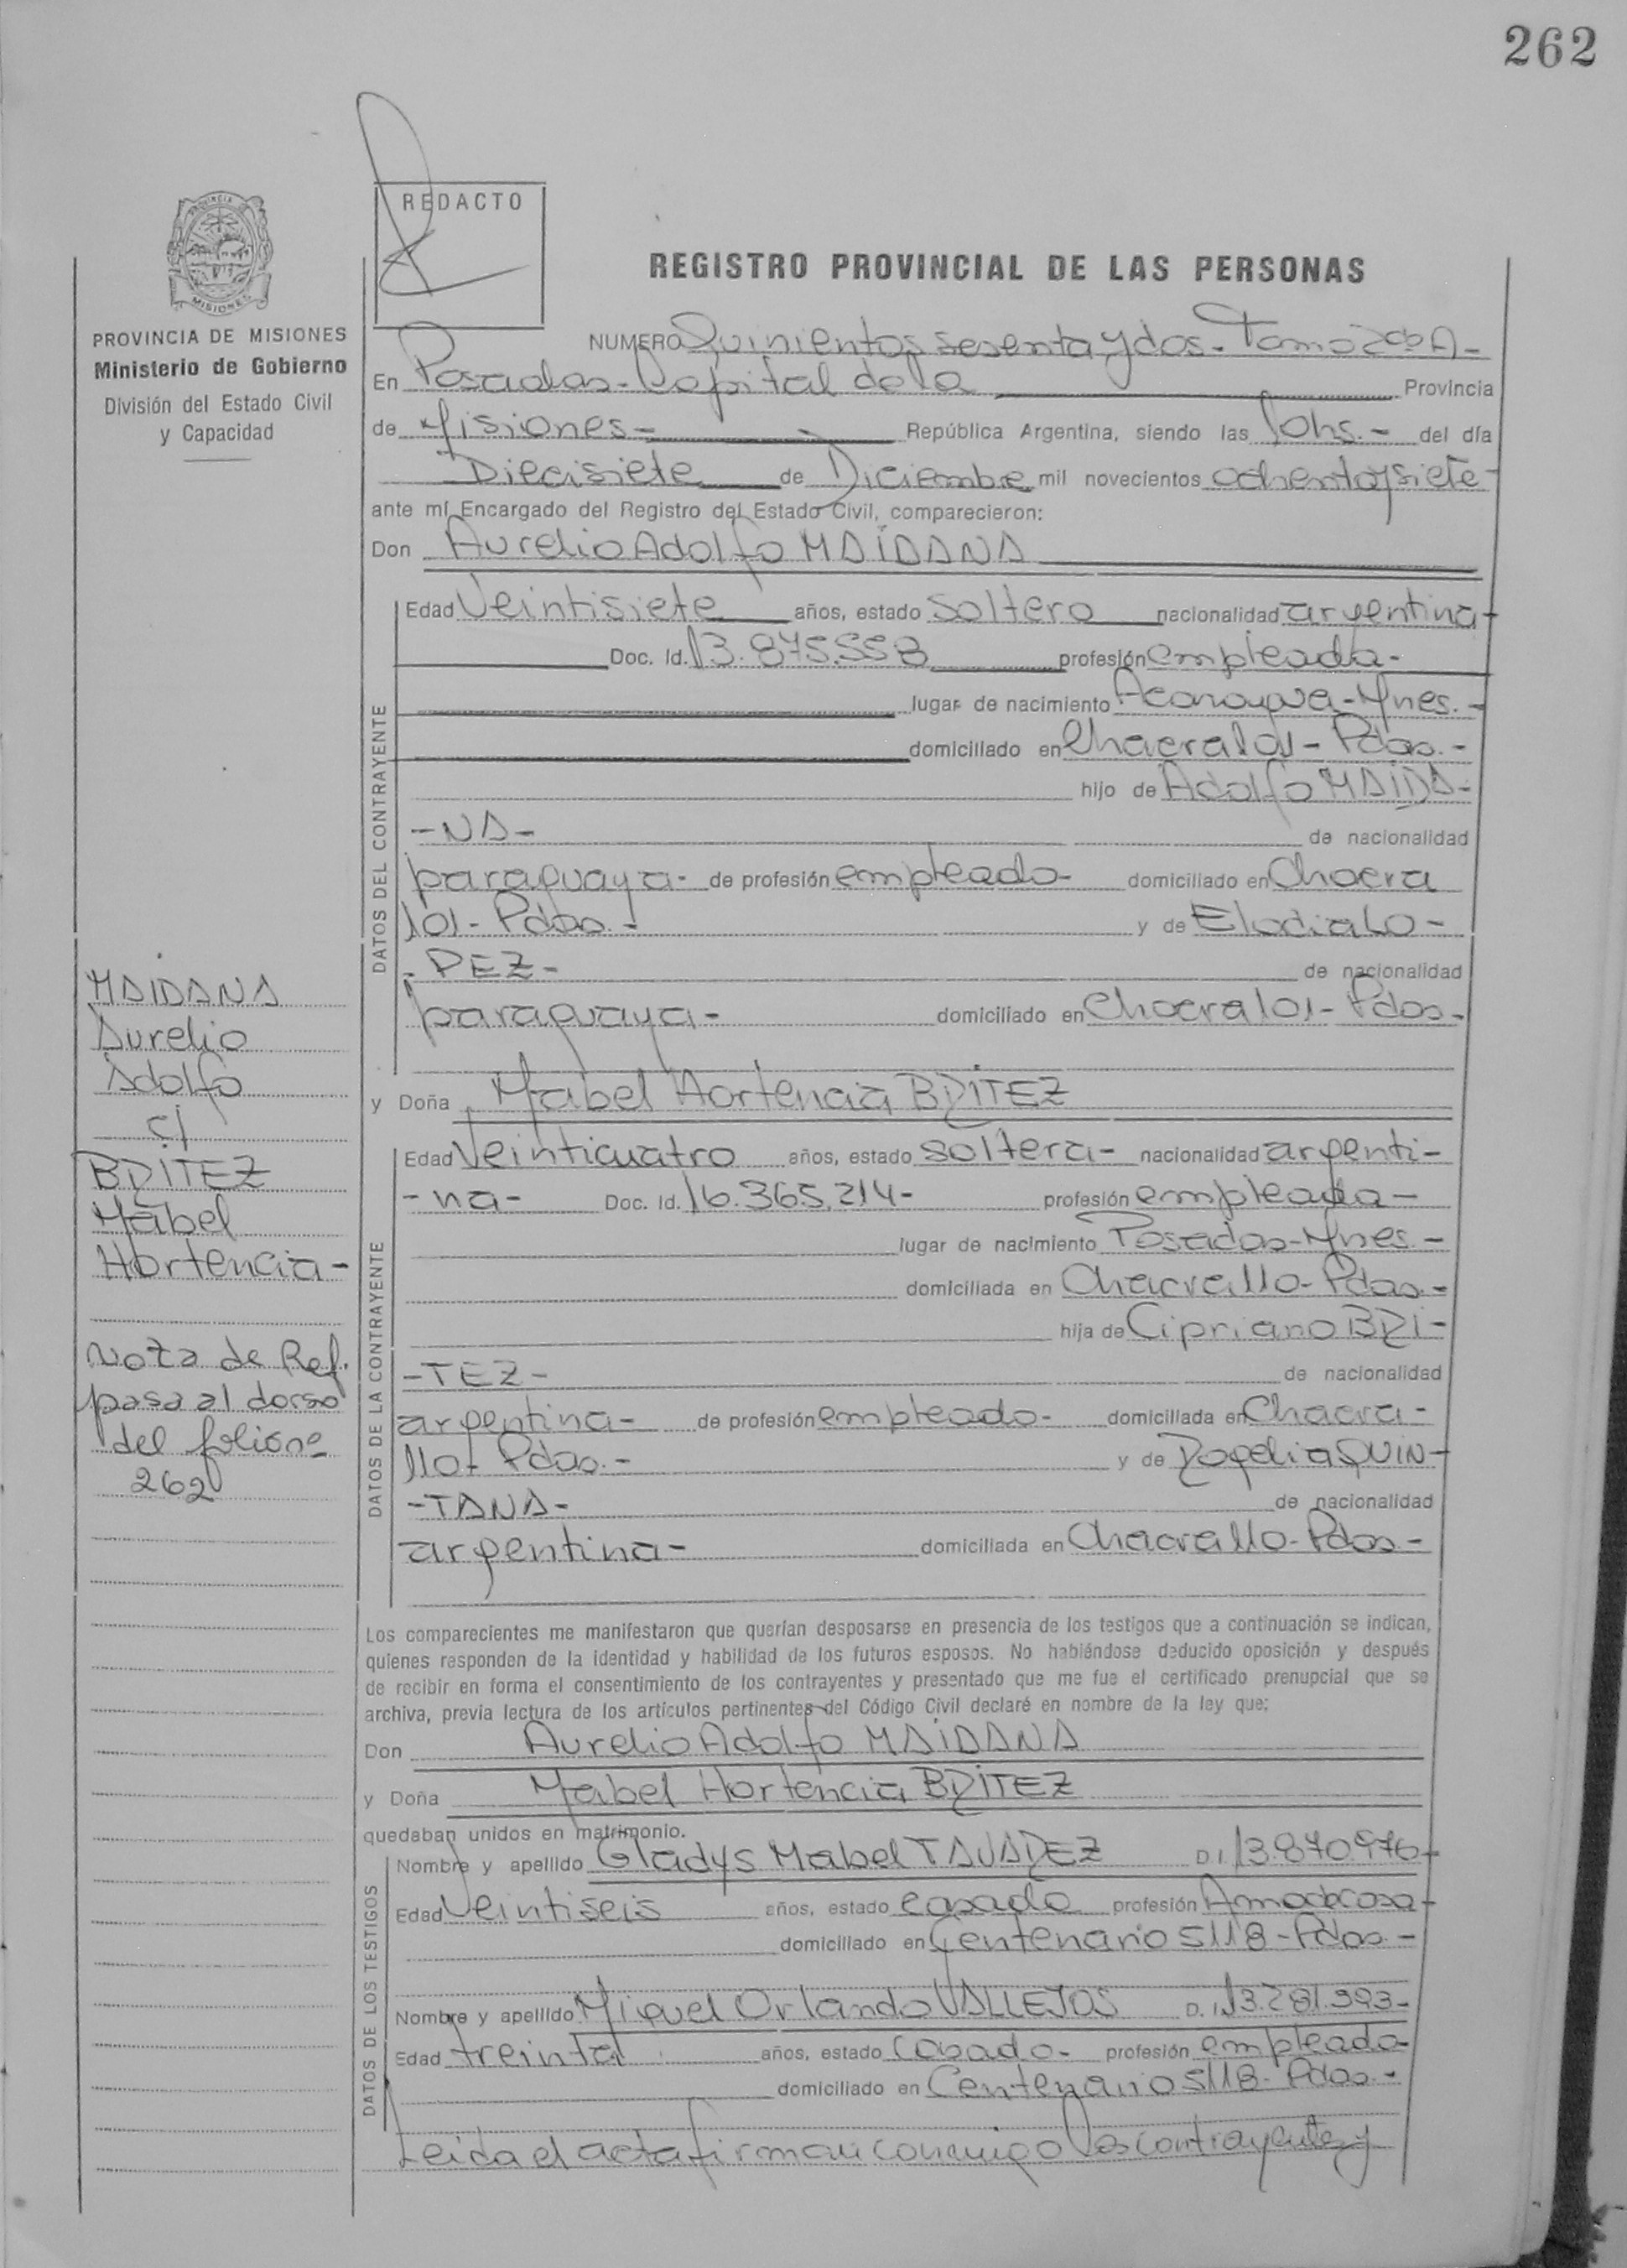 262
REDACTO
REGISTRO PROVINCIAL DE LAS PERSONAS
PROVINCIA DE MISIONES
Ministerio de Gobierno
División del Estado Civil
y Capacidad
NUMERO Quinientos sesenta y dos - Tomo 2do A -
En Posadas - Capital de la Provincia
de Misiones - República Argentina, siendo las 10hs. - del día
Diecisiete de Diciembre mil novecientos ochenta y siete -
ante mí Encargado del Registro del Estado Civil, comparecieron:
Don Aurelio Adolfo MAIDANA
DATOS DEL CONTRAYENTE
Edad Veintisiete años, estado soltero nacionalidad argentina -
Doc. Id. 13.875.558 profesión empleado -
lugar de nacimiento - Mnes. -
domiciliado en Chacra 101 - Pdas. -
hijo de Adolfo MAIDA-
- NA - de nacionalidad
paraguaya - de profesión empleado - domiciliado en Chacra
101 - Pdas. - y de Elodia LO -
- PEZ - de nacionalidad
paraguaya - domiciliado en Chacra 101 - Pdas -
y Doña Mabel Hortencia BRITEZ
DATOS DE LA CONTRAYENTE
Edad Veinticuatro años, estado soltera - nacionalidad argenti -
- na - Doc. Id. 16.365.214 - profesión empleada -
lugar de nacimiento Posadas - Mnes. -
domiciliada en Chacra 110 - Pdas. -
hija de Cipriano BRI -
- TEZ - de nacionalidad
argentina - de profesión empleado - domiciliada en Chacra -
110 - Pdas. - y de Rogelia QUIN -
- TANA - de nacionalidad
argentina - domiciliada en Chacra 110 - Pdas. -
Los comparecientes me manifestaron que querían desposarse en presencia de los testigos que a continuación se indican,
quienes responden de la identidad y habilidad de los futuros esposos. No habiéndose deducido oposición y después
de recibir en forma el consentimiento de los contrayentes y presentado que me fue el certificado prenupcial que se
archiva, previa lectura de los artículos pertinentes del Código Civil declaré en nombre de la ley que:
Don Aurelio Adolfo MAIDANA
y Doña Mabel Hortencia BRITEZ
quedaban unidos en matrimonio.
DATOS DE LOS TESTIGOS
Nombre y apellido Gladys Mabel TAVAREZ D.I. 13.870.976 -
Edad Veintiseis años, estado casada profesión Ama de casa -
domiciliado en Centenario 5118 - Pdas. -
Nombre y apellido Miguel Orlando VALLEJOS D. I. 13.281.993 -
Edad treinta años, estado casado - profesión empleado -
domiciliado en Centenario 5118 - Pdas. -
Leida el acta firman conmigo los contrayentes y
MAIDANA
Aurelio
Adolfo
c/
BRITEZ
Mabel
Hortencia -
Nota de Ref.
pasa al dorso
del folio nº
262
MISIONES